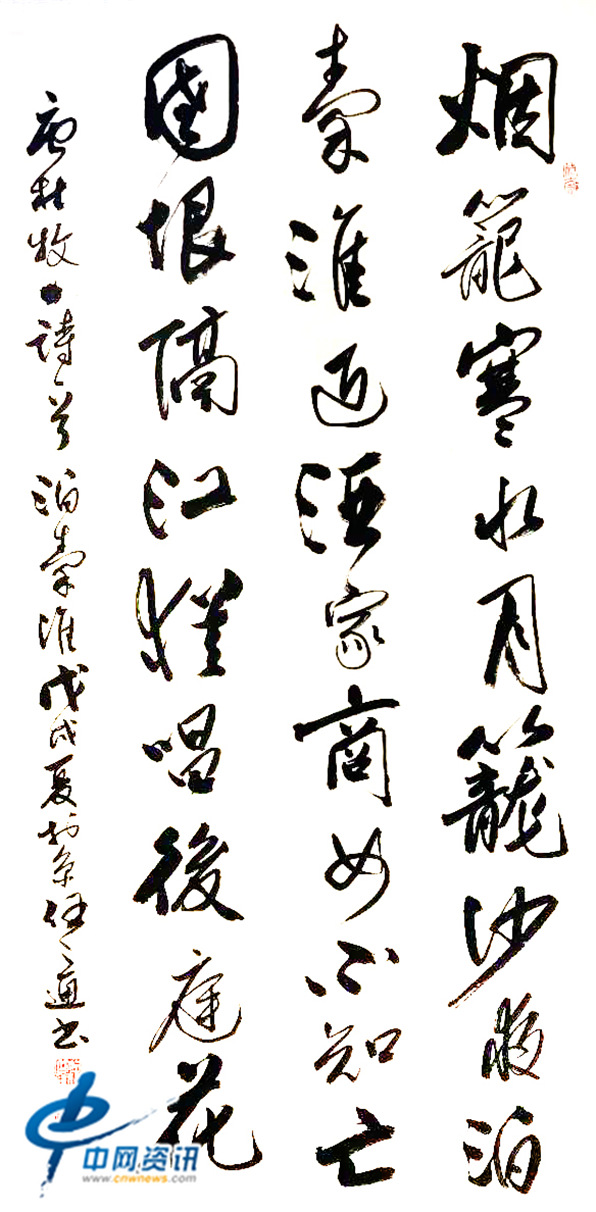 烟籠寒水月籠沙夜泊
秦淮近酒家商女不知亡
國恨隔江猶唱後庭花
唐杜牧●詩一首泊秦淮戊戌夏於京任通書
中网资讯
www.cnwnews.com